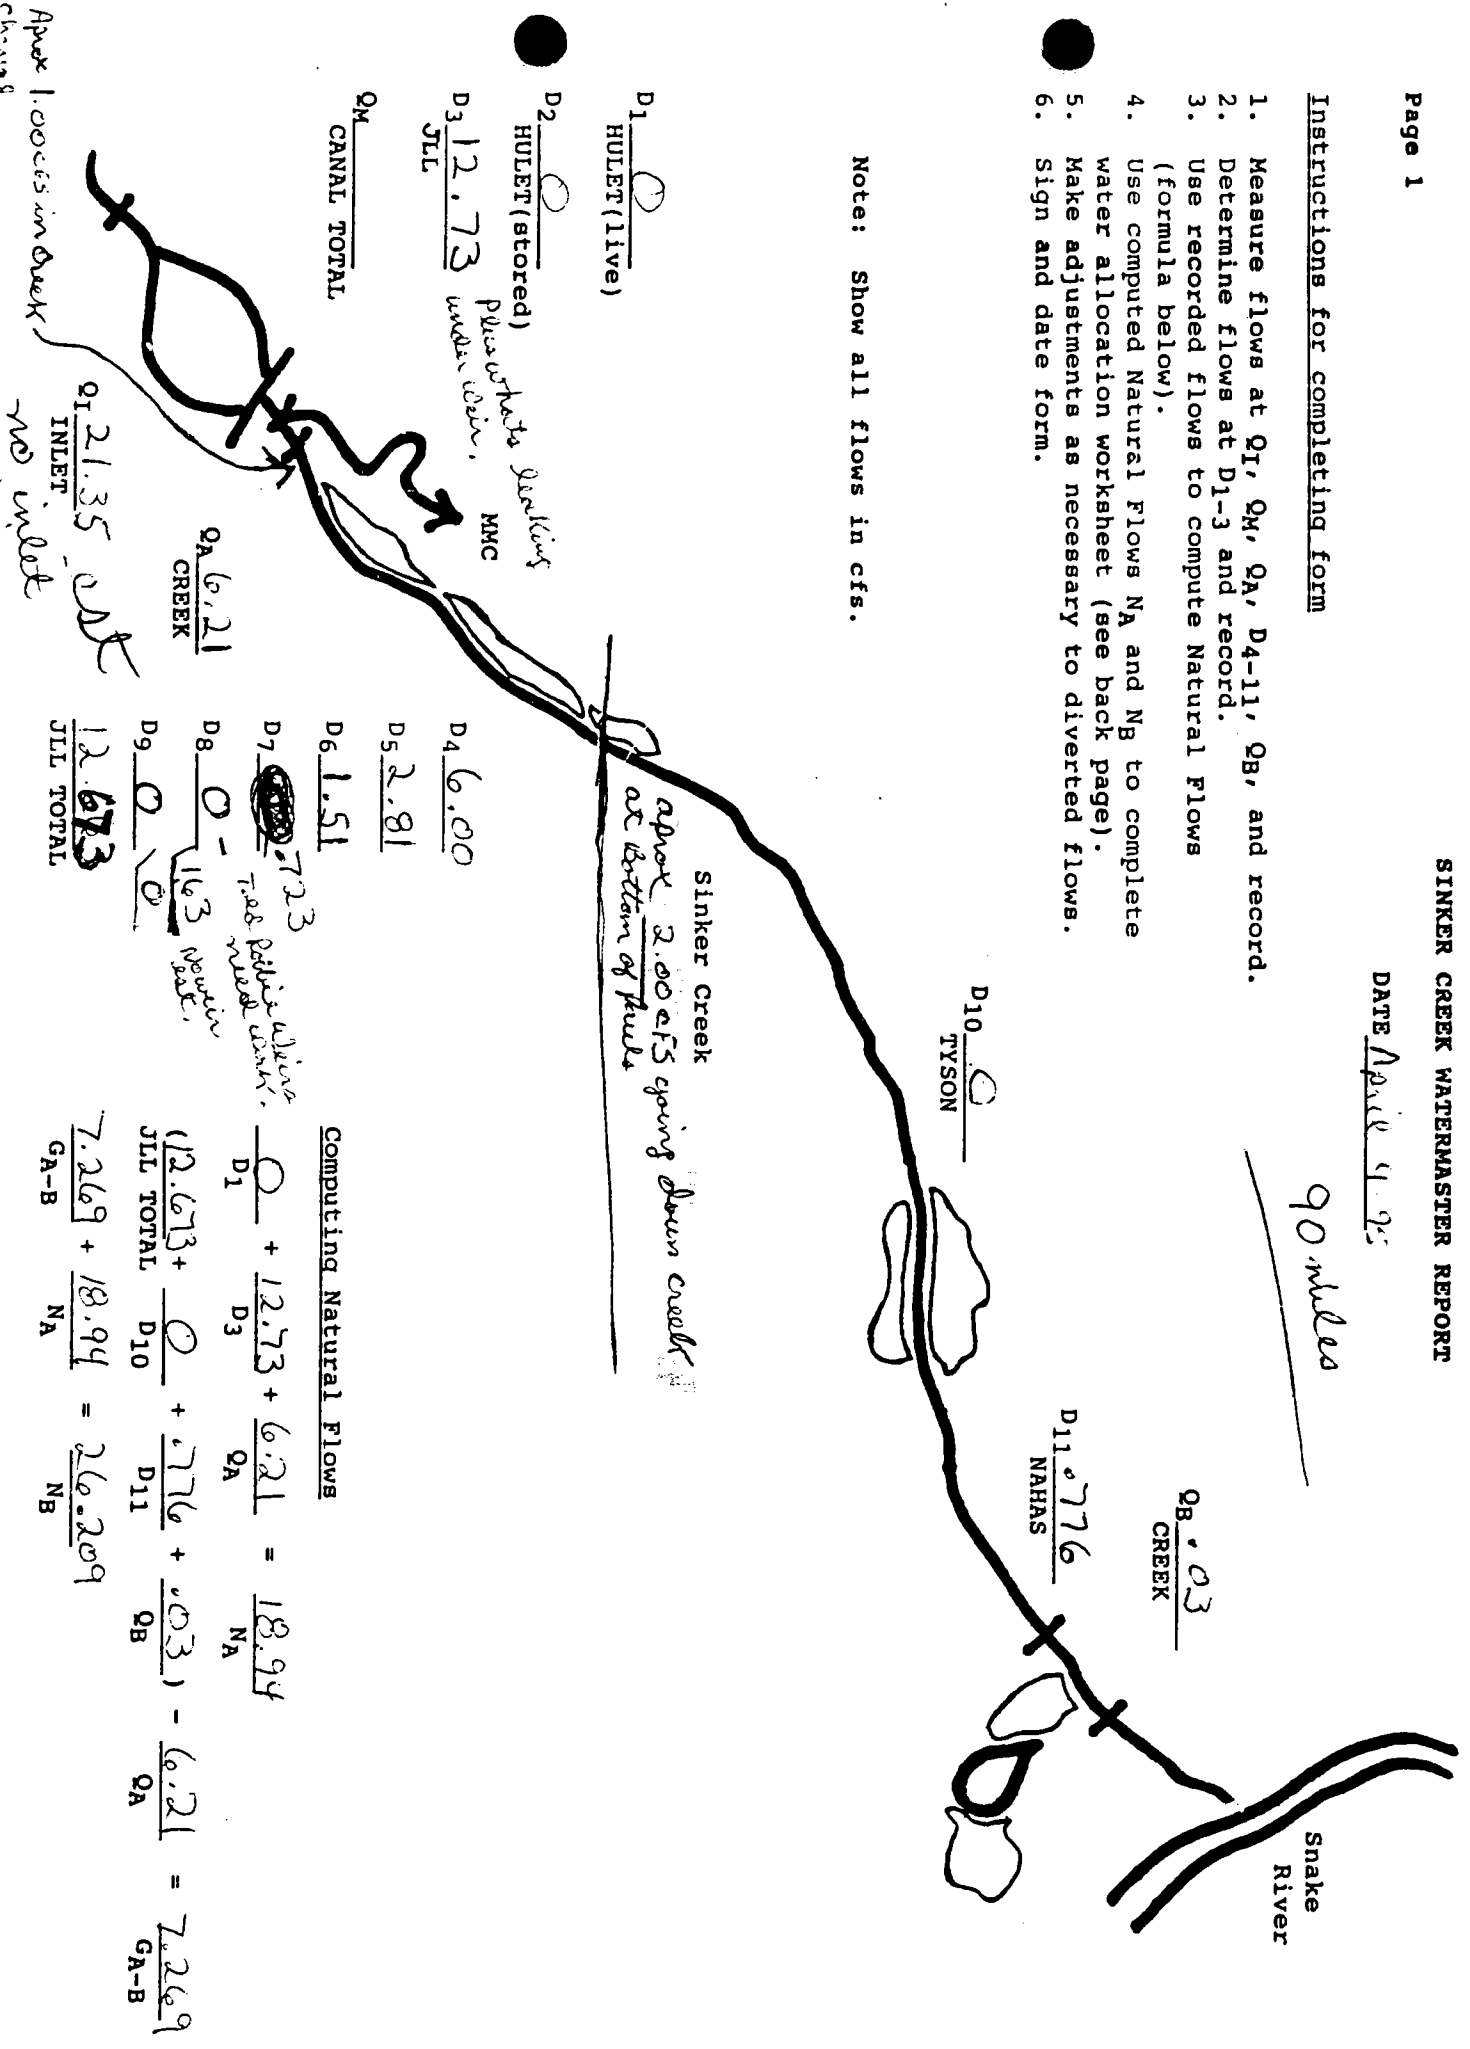 SINKER CREEK WATERMASTER REPORT
Page 1
DATE April 4
90 miles
Instructions for completing form
1. Measure flows at QI, QM, QA, D4-11, QB, and record.
2. Determine flows at D1-3 and record.
3. Use recorded flows to compute Natural Flows
(formula below).
4. Use computed Natural Flows NA and NB to complete
water allocation worksheet (see back page).
5. Make adjustments as necessary to diverted flows.
6. Sign and date form.
Note: Show all flows in cfs.
Snake
River
QB .03
CREEK
D11 .776
NAHAS
D10 0
TYSON
Sinker Creek
aprox 2.00 cFS going down creek
at Bottom of
D1 0
HULET(live)
D2 0
HULET(stored)
D3 12.73
JLL
Plus whats leaking
under weir.
QM
CANAL TOTAL
MMC
Aprox 1.00 cfs in creek
QI 21.35 est
INLET
no inlet
QA 6.21
CREEK
D4 6.00
D5 2.81
D6 1.51
D7 .723
need work.
D8 0 - 1.63
No weir
est.
D9 0 0
12.673
JLL TOTAL
Computing Natural Flows
0 + 12.73 + 6.21 = 18.94
D1 D3 QA NA
(12.673 + 0 + .776 + .03) - 6.21 = 7.269
JLL TOTAL D10 D11 QB QA GA-B
7.269 + 18.94 = 26.209
GA-B NA NB